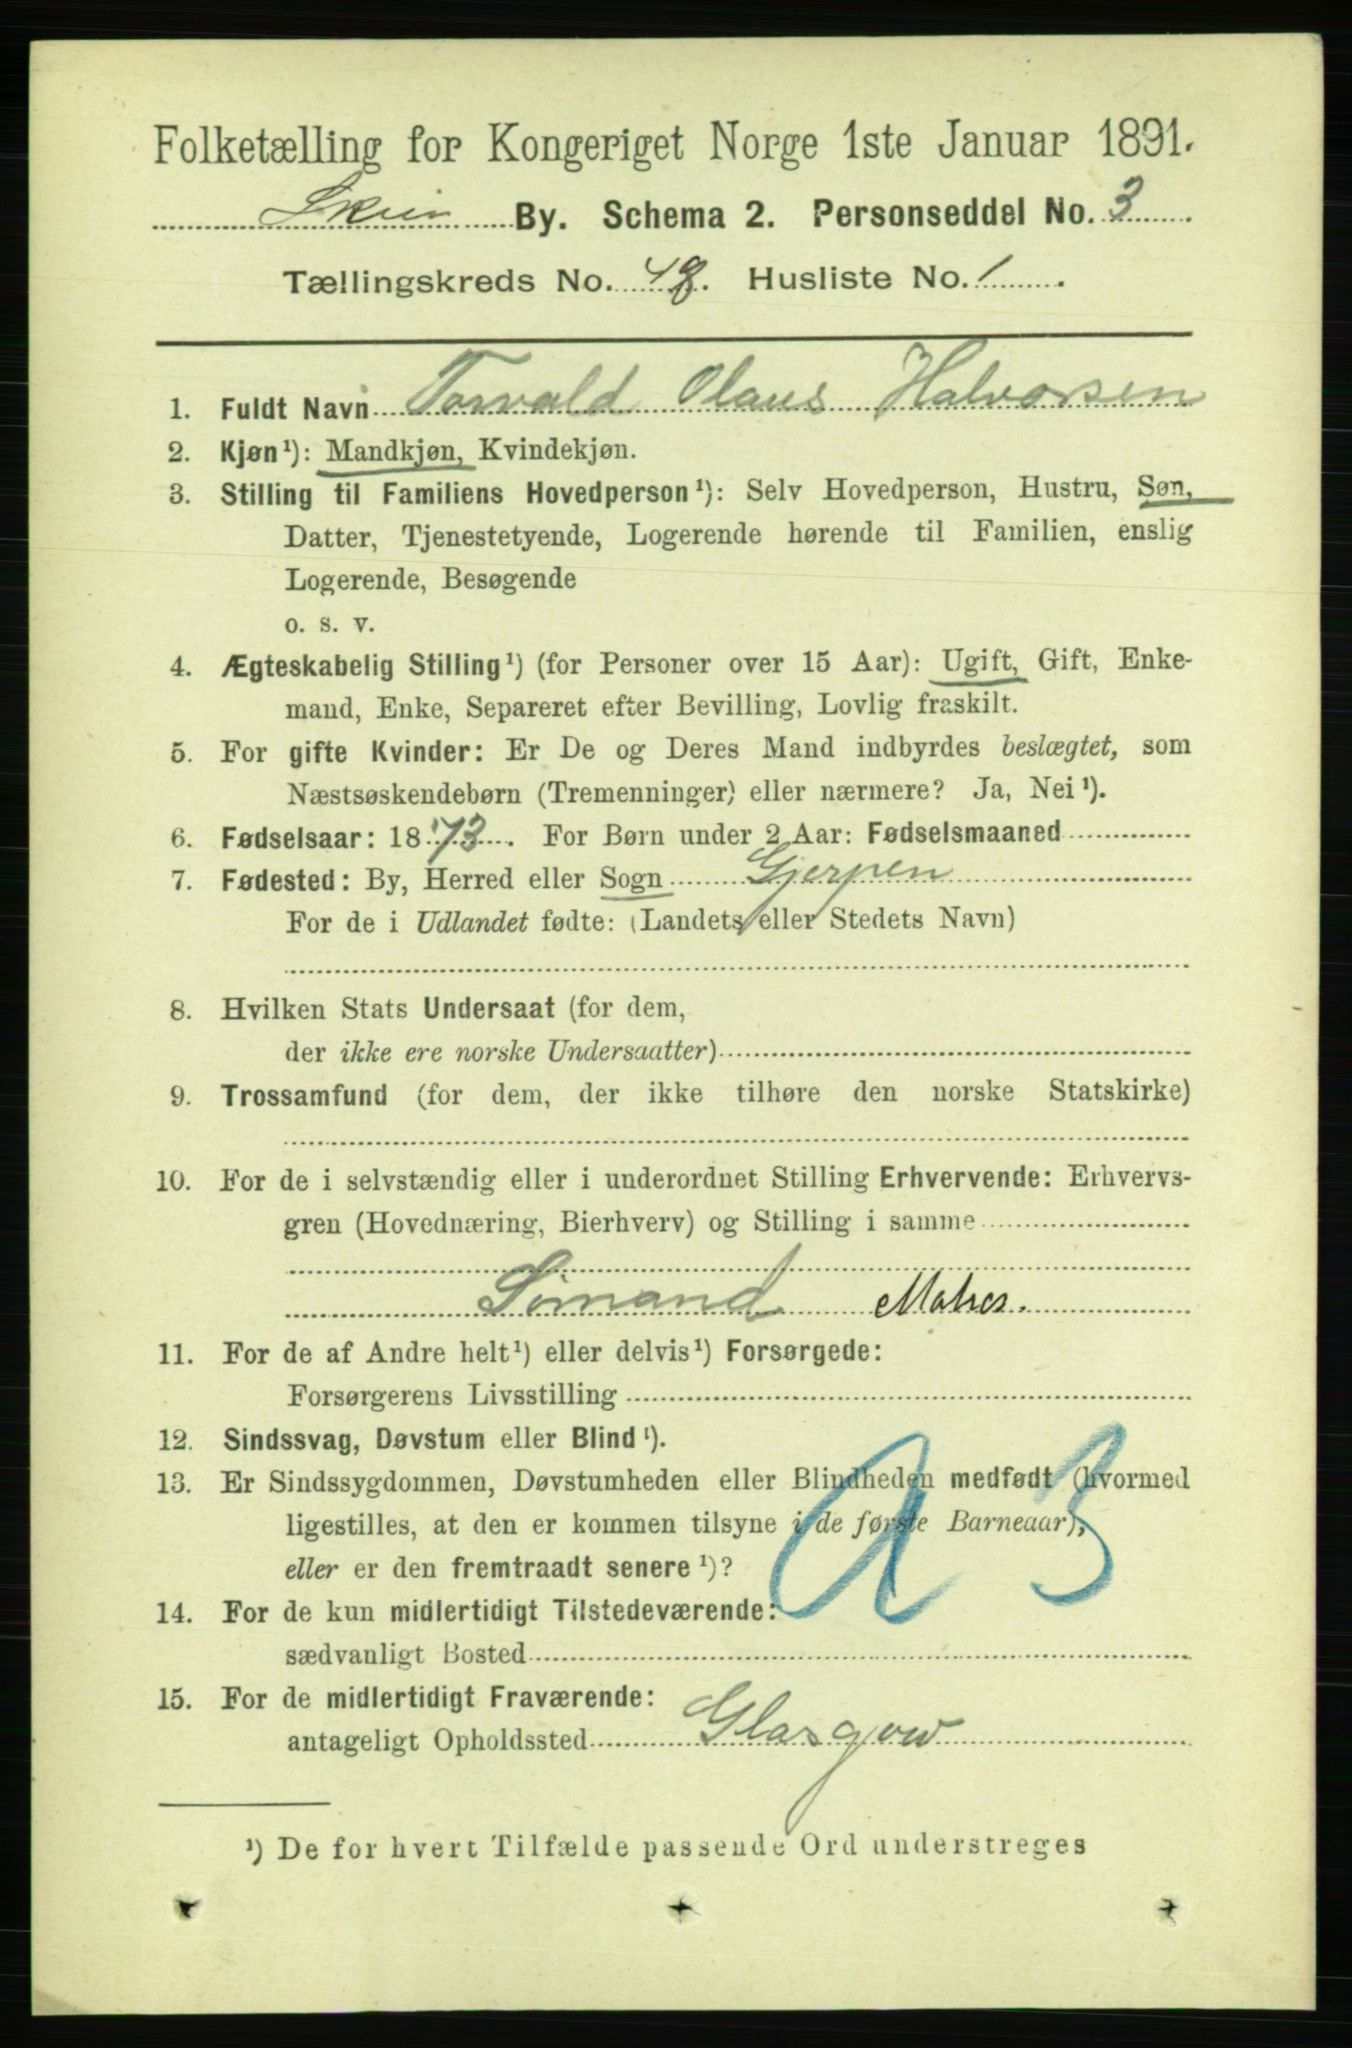 Folketælling for Kongeriget Norge 1ste Januar 1891.
Skien By. Schema 2. Personseddel No. 3.
Tællingskreds No. 48. Husliste No. 1.
1. Fuldt Navn Torvald Olaus Halvorsen
2. Kjøn¹): Mandkjøn, Kvindekjøn.
3. Stilling til Familiens Hovedperson¹): Selv Hovedperson, Hustru, Søn,
Datter, Tjenestetyende, Logerende hørende til Familien, enslig
Logerende, Besøgende
o. s. v.
4. Ægteskabelig Stilling¹) (for Personer over 15 Aar): Ugift, Gift, Enke-
mand, Enke, Separeret efter Bevilling, Lovlig fraskilt.
5. For gifte Kvinder: Er De og Deres Mand indbyrdes beslægtet, som
Næstsøskendebørn (Tremenninger) eller nærmere? Ja, Nei¹).
6. Fødselsaar: 1873. For Børn under 2 Aar: Fødselsmaaned
7. Fødested: By, Herred eller Sogn Gjerpen
For de i Udlandet fødte: (Landets eller Stedets Navn)
8. Hvilken Stats Undersaat (for dem,
der ikke ere norske Undersaatter)
9. Trossamfund (for dem, der ikke tilhøre den norske Statskirke)
10. For de i selvstændig eller i underordnet Stilling Erhvervende: Erhvervs-
gren (Hovednæring, Bierhverv) og Stilling i samme
Sømand Matros.
11. For de af Andre helt¹) eller delvis¹) Forsørgede:
Forsørgerens Livsstilling
12. Sindssvag, Døvstum eller Blind¹).
13. Er Sindssygdommen, Døvstumheden eller Blindheden medfødt (hvormed
ligestilles, at den er kommen tilsyne i de første Barneaar),
eller er den fremtraadt senere¹)?
A 3
14. For de kun midlertidigt Tilstedeværende:
sædvanligt Bosted
15. For de midlertidigt Fraværende:
antageligt Opholdssted Glasgow
¹) De for hvert Tilfælde passende Ord understreges